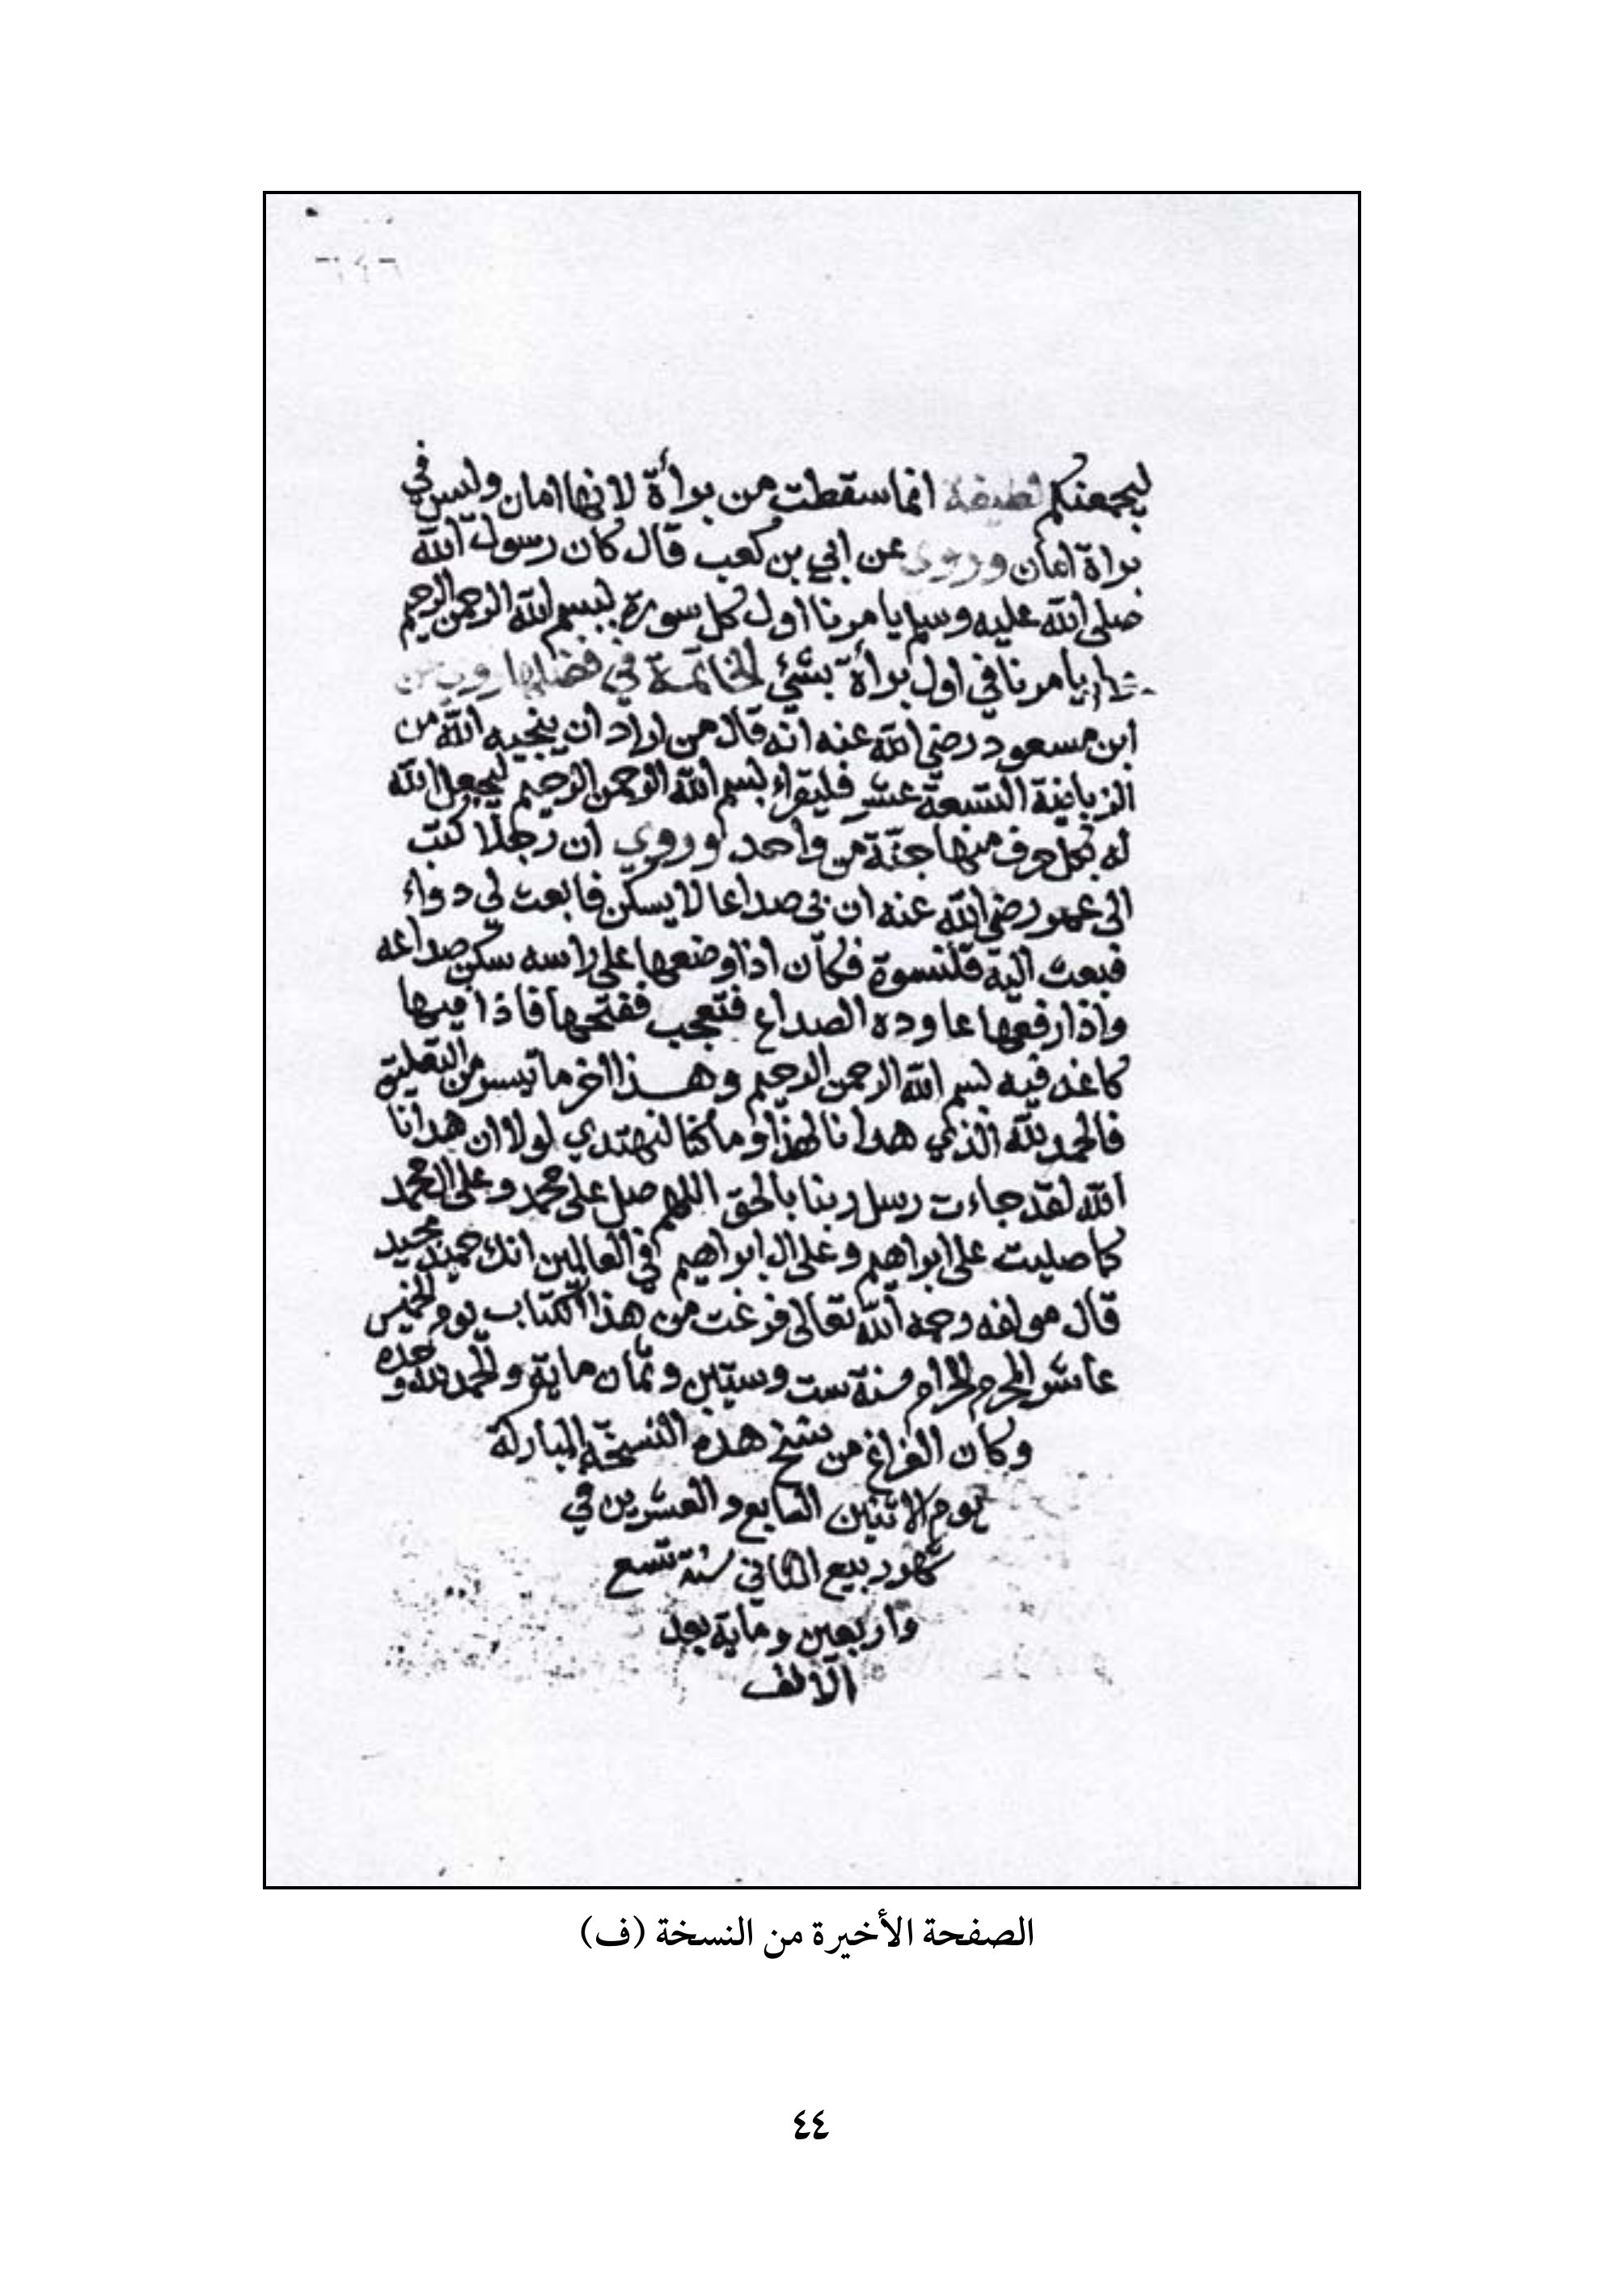 ليجمعنكم لطيفة انما سقطت من برأة لانها امان وليس في
براة امان وروى عن ابي بن كعب قال كان رسول الله
صلى الله عليه وسلم يامرنا اول كل سورة ببسم الله الرحمن الرحيم
يامرنا في اول برأة بشئ الخاتمة في فضلها
ابن مسعود رضي الله عنه انه قال من اراد ان ينجيه الله من
الزبانية التسعة عشر فليقراء بسم الله الرحمن الرحيم ليجعل الله
له بكل حرف منها جنة من واحد وروي ان رجلا كتب
الى عمر رضي الله عنه ان بي صداعا لا يسكن فابعث لي دواء
فبعث اليه قلنسوة فكان اذا وضعها على راسه سكن صداعه
واذا رفعها عاوده الصداع فتعجب ففتحها فاذا فيها
كاغد فيه بسم الله الرحمن الرحيم وهذا اخر ما تيسر من التعليق
فالحمد لله الذي هدانا لهذا وما كنا لنهتدي لولا ان هدانا
الله لقد جاءت رسل ربنا بالحق اللهم صل على محمد وعلى ال محمد
كما صليت على ابراهيم وعلى ال ابراهيم في العالمين انك حميد مجيد
قال مولفه رحمه الله تعالى فرغت من هذا الكتاب يوم الخميس
عاشر المحرم الحرام سنة ست وستين وثمان ماية والحمد لله وحده
وكان الفراغ من نسخ هذه النسخة المباركة
يوم الاثنين السابع والعشرين في
شهر ربيع الثاني سنة تسع
واربعين وماية بعد
الالف
الصفحة الأخيرة من النسخة (ف)
٤٤